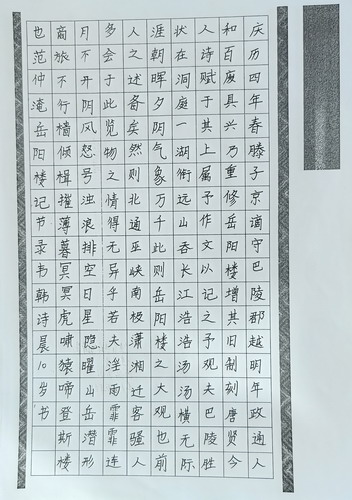 庆历四年春滕子京谪守巴陵郡越明年政通人
和百废具兴乃重修岳阳楼增其旧制刻唐贤今
人诗赋于其上属予作文以记之予观夫巴陵胜
状在洞庭一湖衔远山吞长江浩浩汤汤横无际
涯朝晖夕阴气象万千此则岳阳楼之大观也前
人之述备矣然则北通巫峡南极潇湘迁客骚人
多会于此览物之情得无异乎若夫淫雨霏霏连
月不开阴风怒号浊浪排空日星隐曜山岳潜形
商旅不行樯倾楫摧薄暮冥冥虎啸猿啼登斯楼
也范仲淹岳阳楼记节录韦韩诗晨10岁书